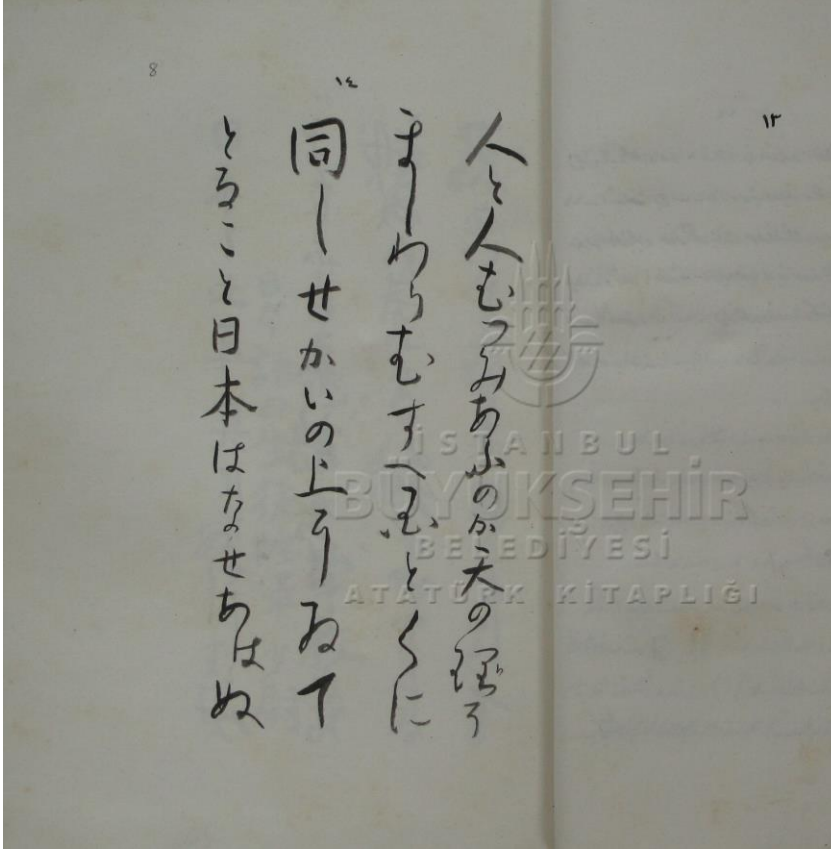 ١٣
١٤
8
人と人むつみあふのか天の理そ
ましわりむすへ国とくに
同しせかいの上にゐて
とること日本はなせあはぬ
İSTANBUL
BÜYÜKŞEHİR
BELEDİYESİ
ATATÜRK KİTAPLIĞI